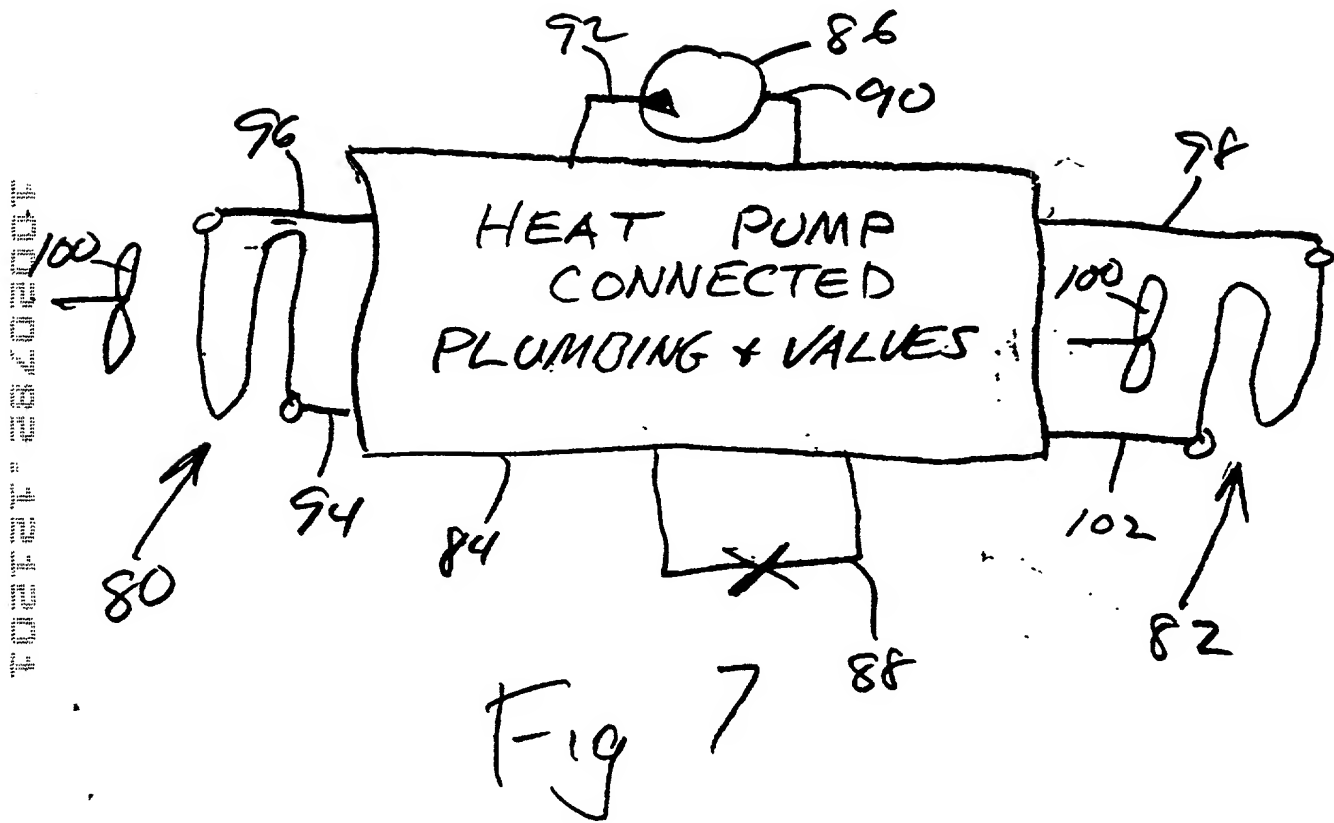 92
86
90
96
98
HEAT PUMP
CONNECTED
PLUMBING + VALVES
100
100
94
84
102
80
88
82
Fig 7